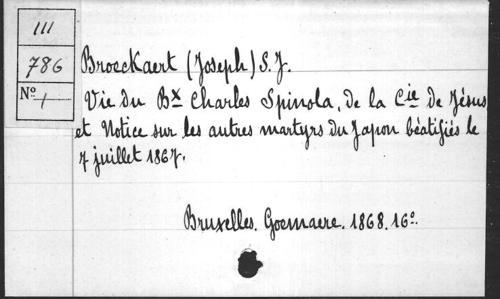 III
786
Nº 1
Broeckaert (Joseph) S.J.
Vie du Bx Charles Spinola, de la Cie de Jésus
et Notice sur les autres martyrs du Japon béatifiés le
7 juillet 1867.
Bruxelles. Goemaere. 1868. 16º.